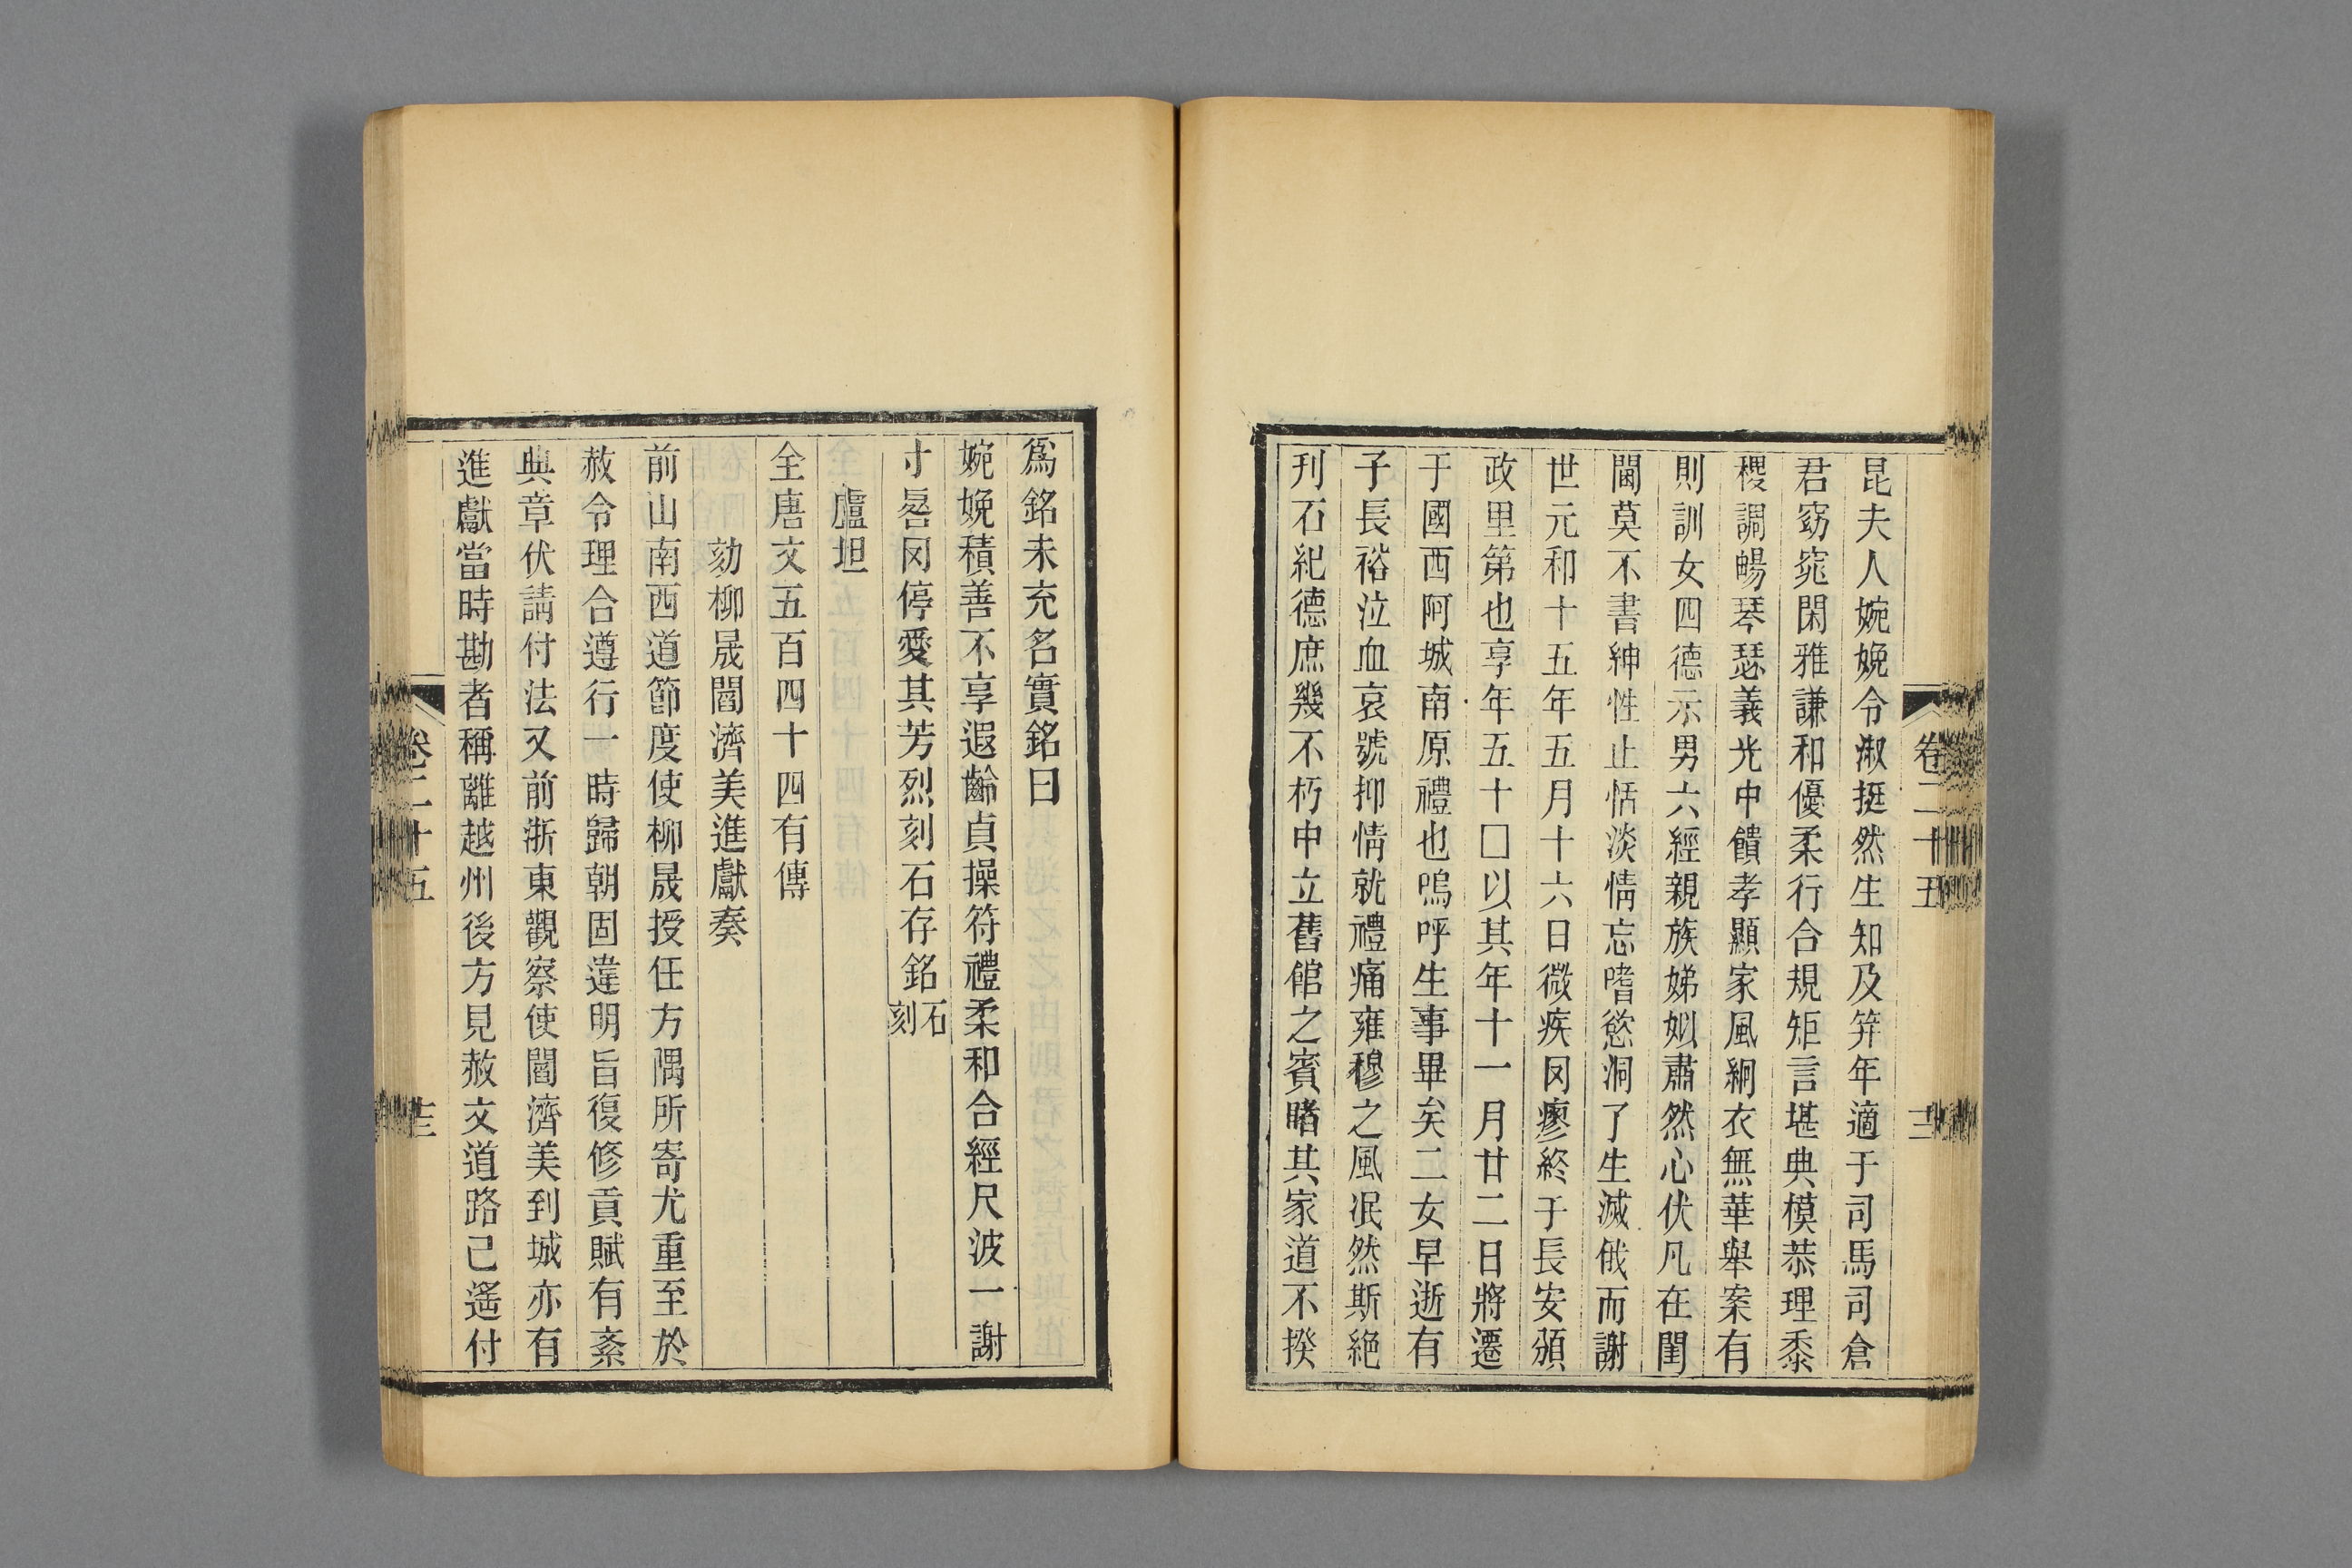 昆夫人婉娩令淑挺然生知及笄年適于司馬司倉
君窈窕閑雅謙和優柔行合規矩言堪典模恭理黍
稷調暢琴瑟義光中饋孝顯家風絅衣無華舉案有
則訓女四德示男六經親族娣姒肅然心伏凡在閨
閫莫不書紳性止恬淡情忘嗜慾洞了生滅俄而謝
世元和十五年五月十六日微疾罔瘳終于長安頒
政里第也享年五十□以其年十一月廿二日將遷
于國西阿城南原禮也嗚呼生事畢矣二女早逝有
子長裕泣血哀號抑情就禮痛雍穆之風泯然斯絕
刊石紀德庶幾不朽中立舊館之賓睹其家道不揆
卷二十五
十二
爲銘未充名實銘曰
婉娩積善不享遐齡貞操符禮柔和合經尺波一謝
寸晷罔停愛其芳烈刻石存銘石刻
盧坦
全唐文五百四十四有傳
劾柳晟閻濟美進獻奏
前山南西道節度使柳晟授任方隅所寄尤重至於
赦令理合遵行一時歸朝固違明旨復修貢賦有紊
典章伏請付法又前浙東觀察使閻濟美到城亦有
進獻當時勘者稱離越州後方見赦文道路己遙付
卷二十五
十三